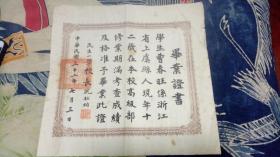 畢業證書
學生曹春旺係浙江
省上虞縣人現年十
二歲在本校高級部
修業期滿考查成績
及格准予畢業此證
民生 校長
中華民國三十三年七月三日